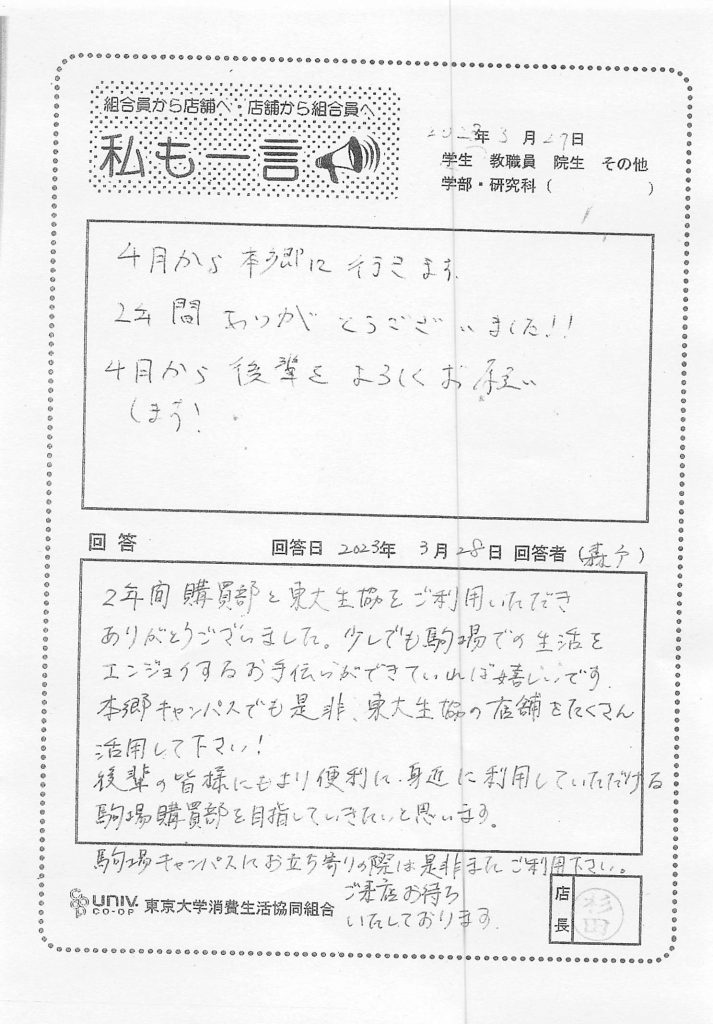 組合員から店舗へ・店舗から組合員へ
私も一言
2023年3月27日
学生 教職員 院生 その他
学部・研究科( )
4月から本郷に行きます
2年間ありがとうございました!!
4月から後輩をよろしくお願い
します!
回答 回答日 2023年 3月28日 回答者(森下)
2年間購買部と東大生協をご利用いただき
ありがとうございました。少しでも駒場での生活を
エンジョイするお手伝いができていれば嬉しいです。
本郷キャンパスでも是非、東大生協の店舗をたくさん
活用して下さい!
後輩の皆様にもより便利に、身近に利用していただける
駒場購買部を目指していきたいと思います。
駒場キャンパスにお立ち寄りの際は是非またご利用下さい。
ご来店お待ち
いたしております。
UNIV.
CO-OP
東京大学消費生活協同組合
店長
杉田